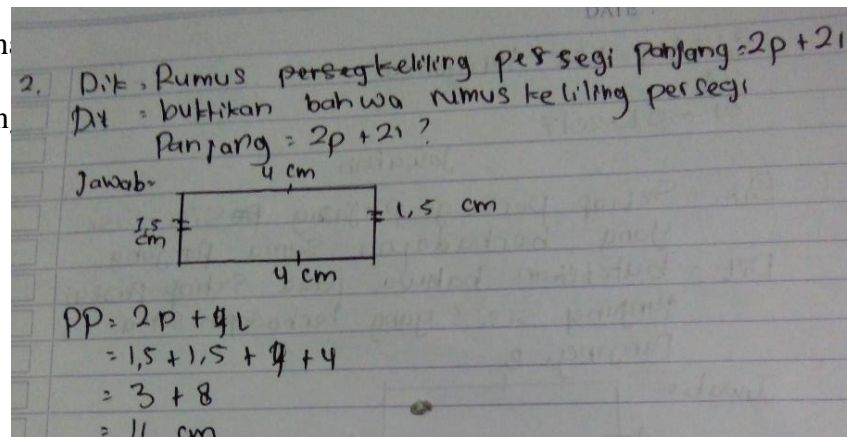 DATE :
2. Dik : Rumus keliling persegi panjang = 2p + 2l
Dit : buktikan bahwa rumus keliling persegi
panjang = 2p + 2l ?
Jawab =
4 cm
1,5 cm
1,5 cm
4 cm
PP = 2p + 4L
= 1,5 + 1,5 + 4 + 4
= 3 + 8
= 11 cm